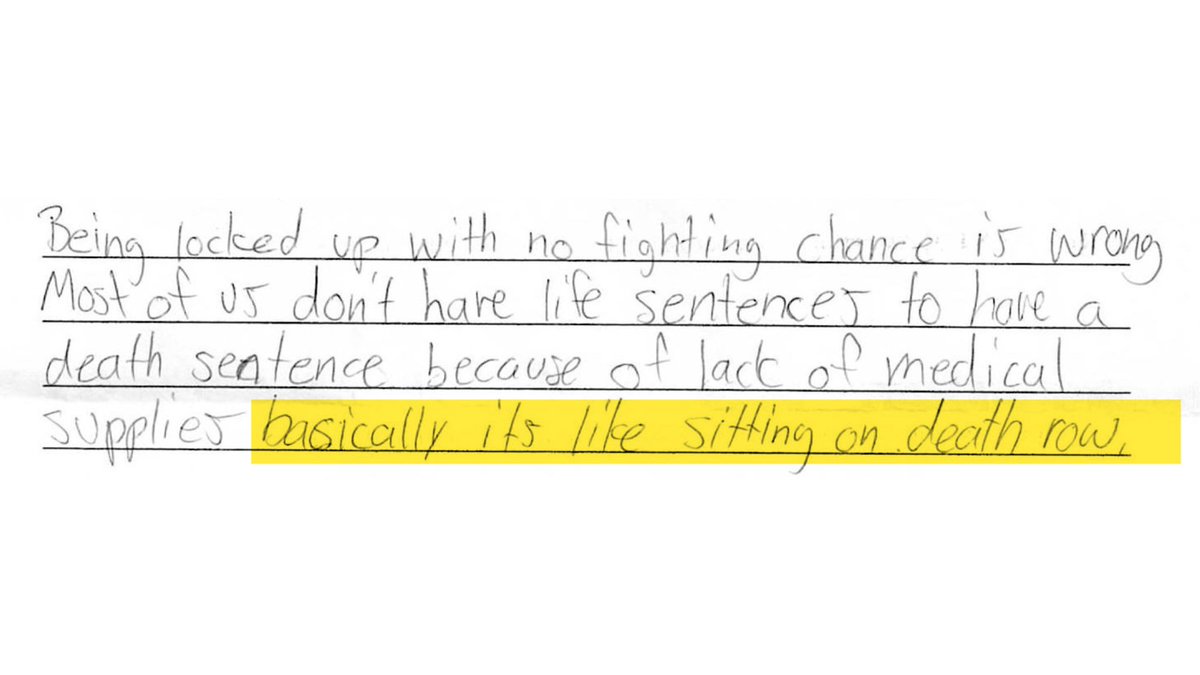 Being locked up with no fighting chance is wrong
Most of us don't have life sentences to have a
death sentence because of lack of medical
supplies basically its like sitting on death row.